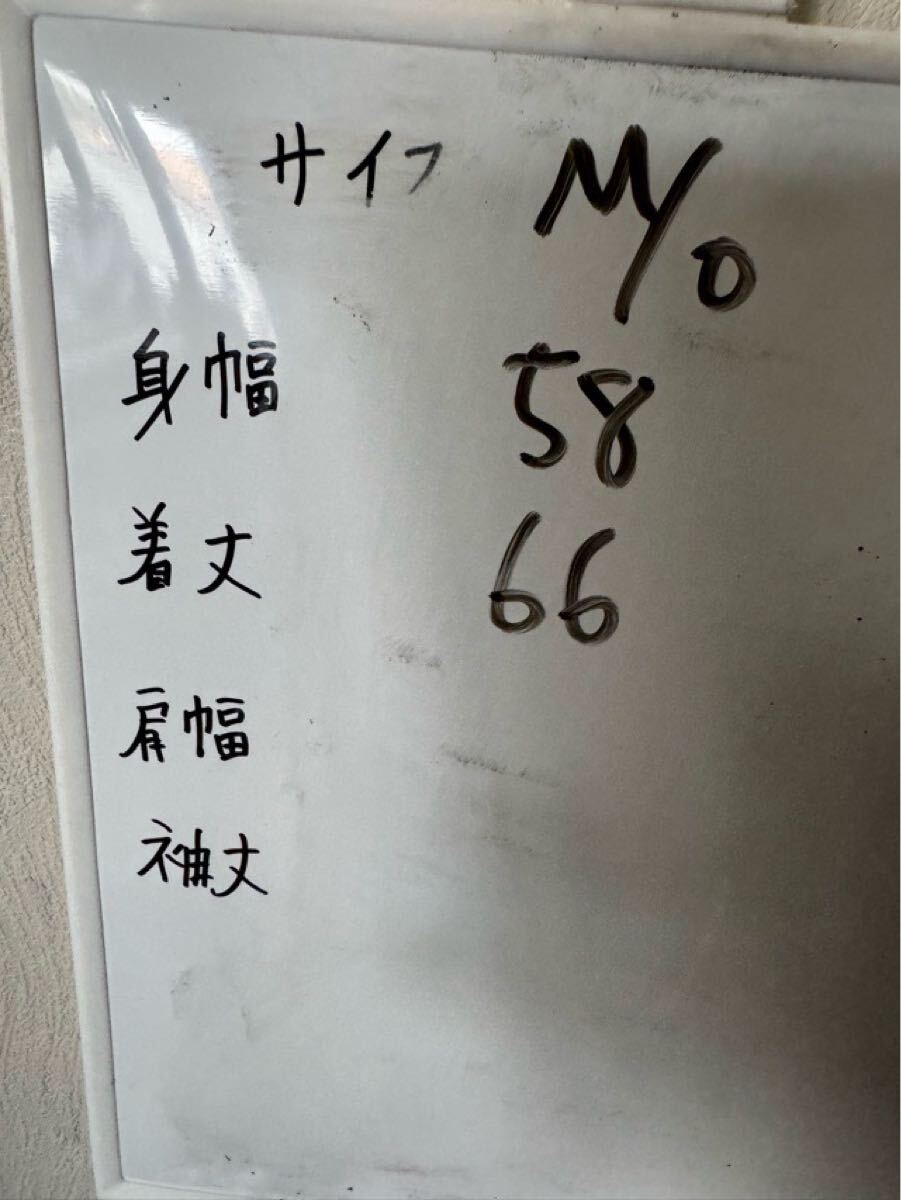 サイフ M/0
身幅 58
着丈 66
肩幅
袖丈